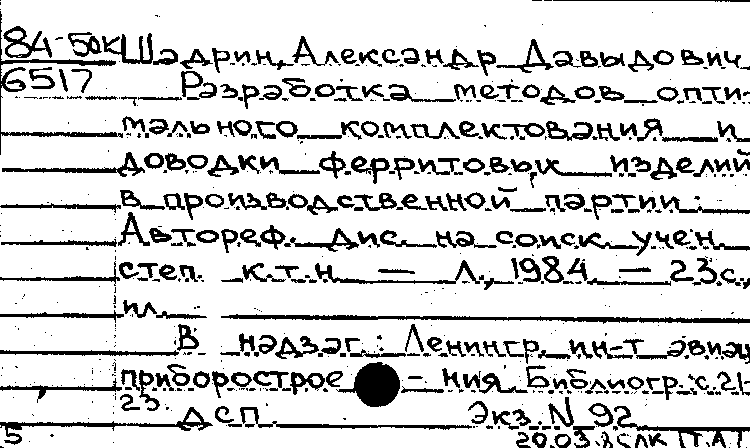 84-50к Шадрин, Александр Давыдович
6517 Разработка методов опти-
мального комплектования и
доводки ферритовых изделий
в производственной партии:
Автореф. дис. на соиск. учен.
степ. к.т.н. — Л., 1984. — 23 с.,
ил.
В надзаг.: Ленингр. ин-т авиац
приборострое - ния. Библиогр.: с. 21-
23.
ДСП. Экз. N 92
5 20.03.